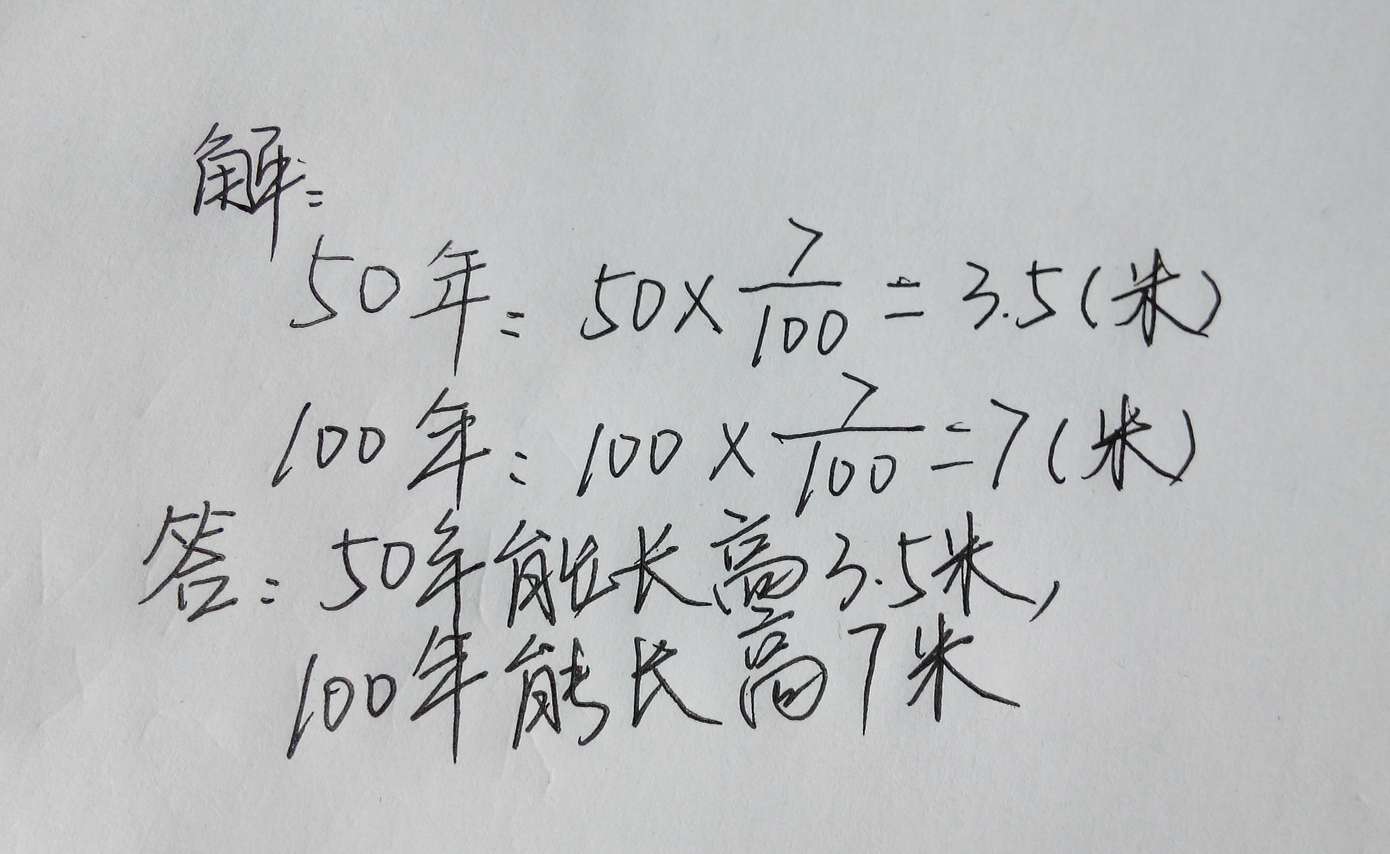 解:
50年: 50×7/100=3.5(米)
100年: 100×7/100=7(米)
答: 50年能长高3.5米,
100年能长高7米